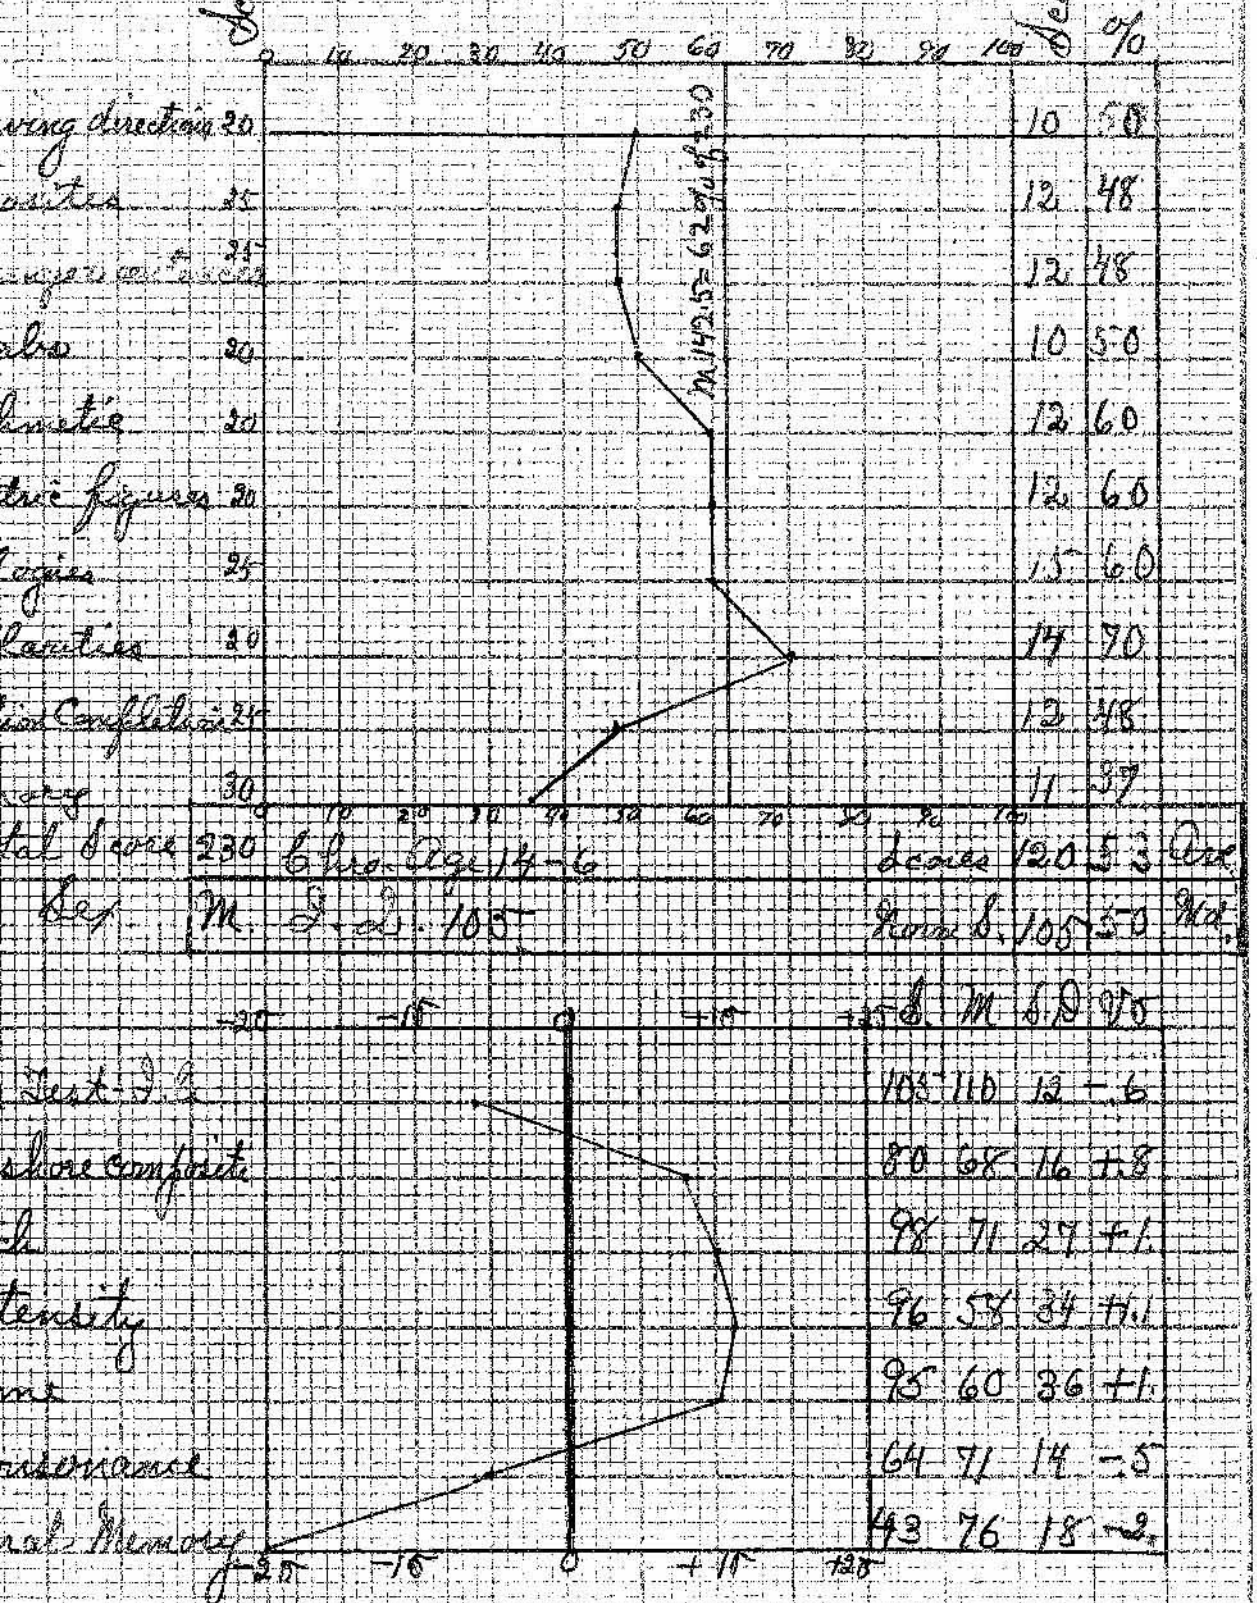 0 10 20 30 40 50 60 70 80 90 100 %
ving directions 20 10 50
osites 25 12 48
25 12 48
abs 20 10 50
hmetic 20 12 60
tric figures 20 12 60
logies 25 15 60
larities 20 14 70
tion Completion 25 12 48
ory 30 11 37
M 142.5 = 62% of 230
0 10 20 30 40 50 60 70 80 90 100
tal Score 230 Chro. Age 14-6 Scores 120 53 Ave.
Sex M. I.Q. 105 Norm S. 105 50 Md.
-2σ -1σ 0 +1σ +2σ S. M S.D
Test-I.Q 105 110 12 -.6
shore composite 80 68 16 +.8
ch 98 71 27 +1.
tensity 96 58 34 +1.1
me 95 60 36 +1.
nsonance 64 71 14 -.5
nal Memory 43 76 18 -2.
-2σ -1σ 0 +1σ +2σ